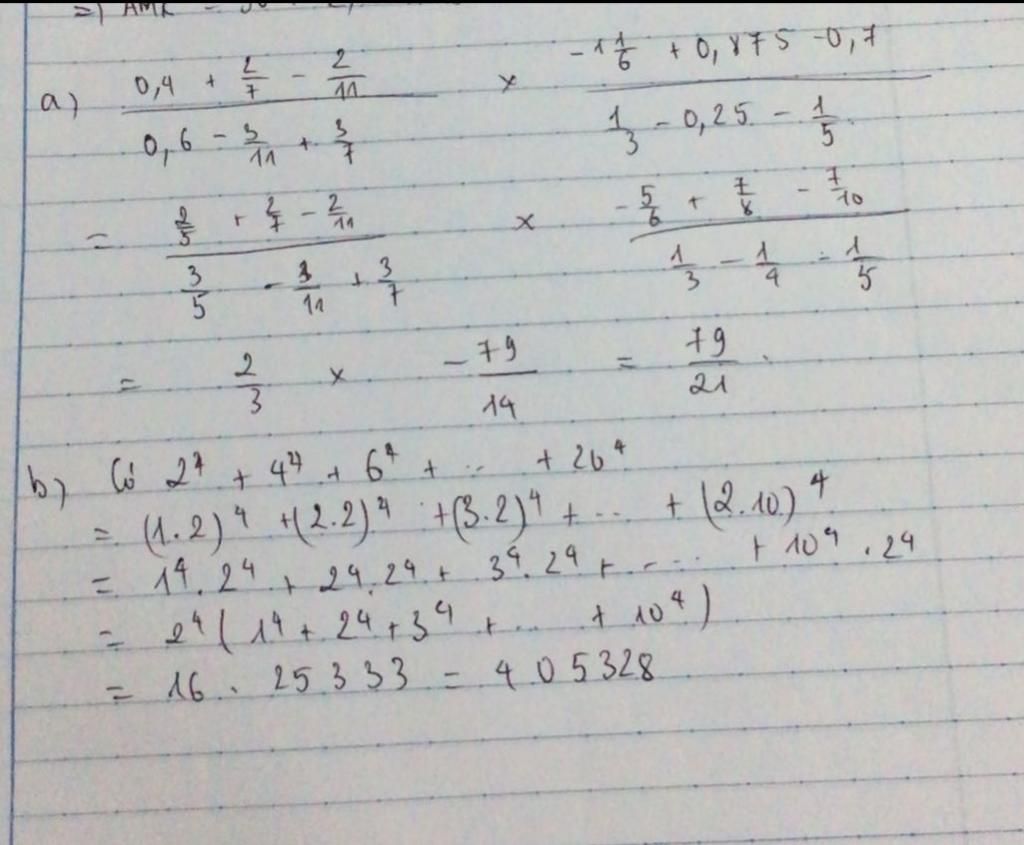 =) AMK = 
a) \frac{0,4 + \frac{2}{7} - \frac{2}{11}}{0,6 - \frac{3}{11} + \frac{3}{7}} × \frac{-1\frac{1}{6} + 0,875 - 0,7}{\frac{1}{3} - 0,25 - \frac{1}{5}}
= \frac{\frac{2}{5} + \frac{2}{7} - \frac{2}{11}}{\frac{3}{5} - \frac{3}{11} + \frac{3}{7}} × \frac{-\frac{5}{6} + \frac{7}{8} - \frac{7}{10}}{\frac{1}{3} - \frac{1}{4} - \frac{1}{5}}
= \frac{2}{3} × -\frac{79}{14} = \frac{79}{21}.
b) Có 2^4 + 4^4 + 6^4 + ... + 20^4
= (1.2)^4 + (2.2)^4 + (3.2)^4 + ... + (2.10)^4
= 1^4.2^4 + 2^4.2^4 + 3^4.2^4 + ... + 10^4.2^4
= 2^4 (1^4 + 2^4 + 3^4 + ... + 10^4)
= 16 . 25333 = 405328